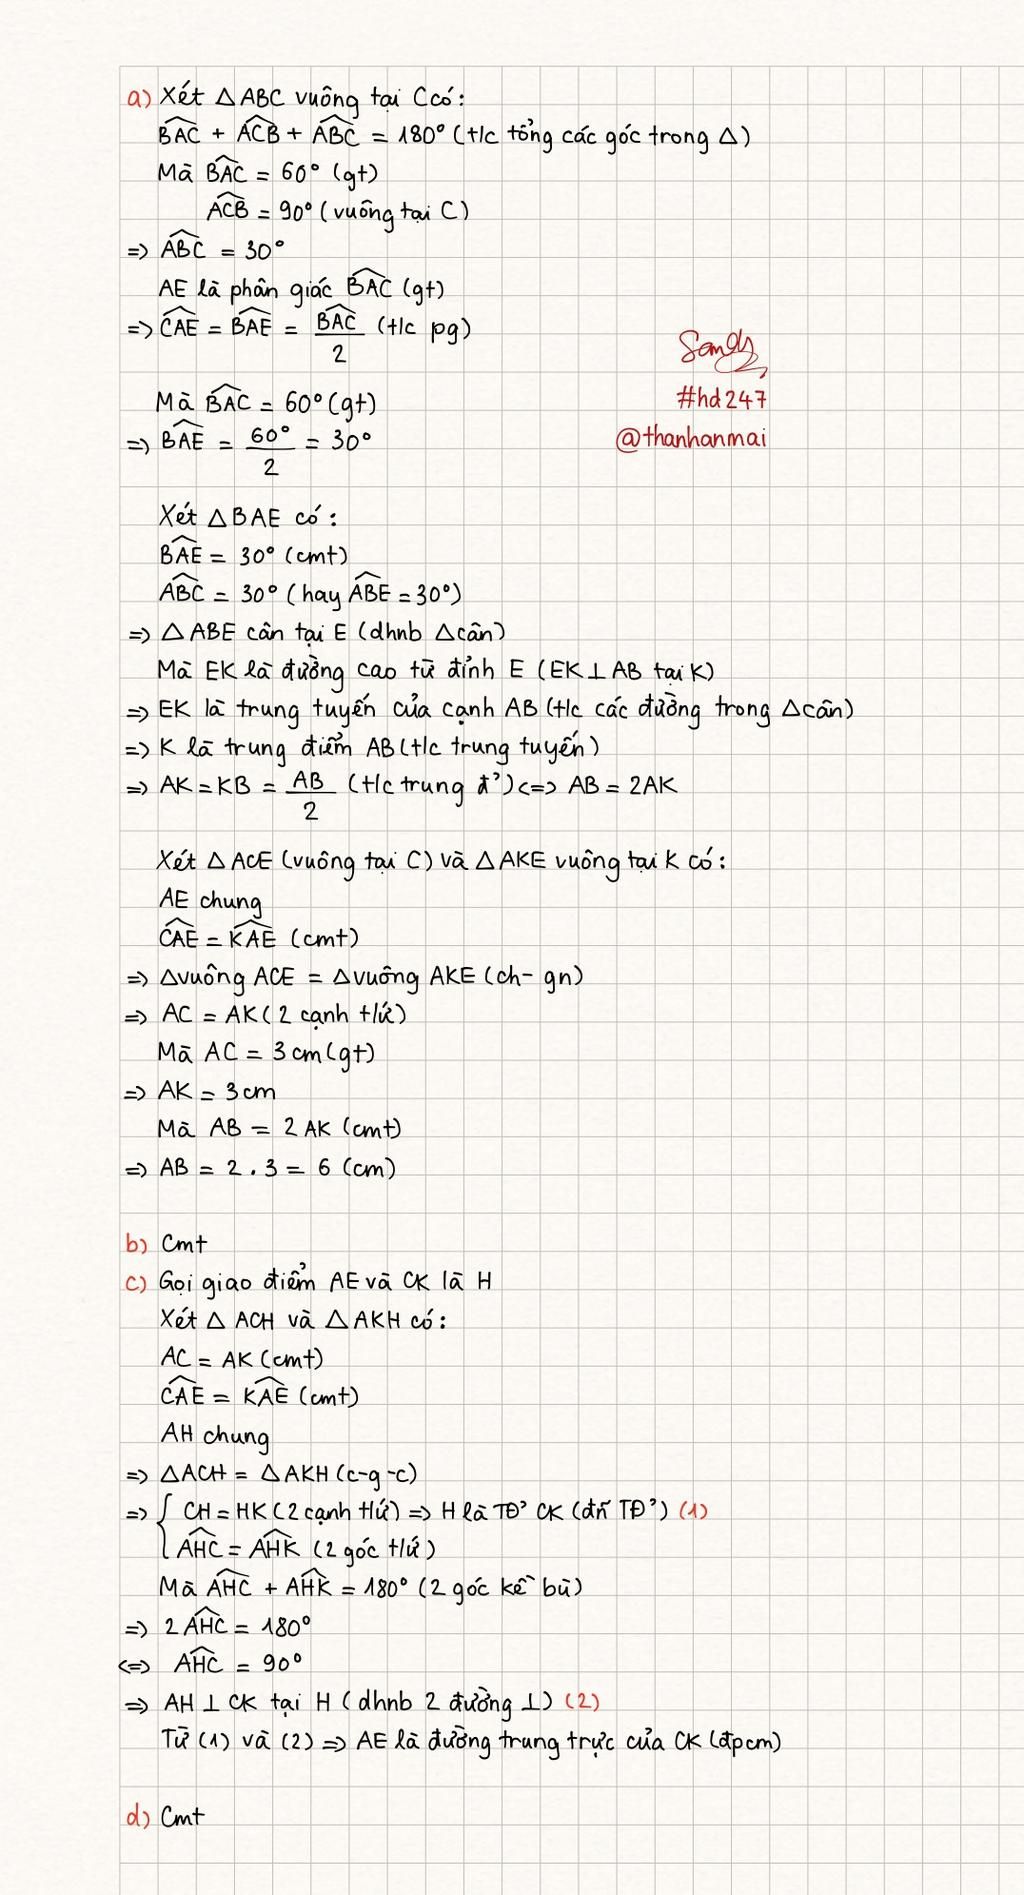 a) Xét △ABC vuông tại C có:
BAC + ACB + ABC = 180° (t/c tổng các góc trong △)
Mà BAC = 60° (gt)
ACB = 90° (vuông tại C)
=> ABC = 30°
AE là phân giác BAC (gt)
=> CAE = BAE = BAC/2 (t/c pg)
Sandy
#hd247
@thanhanmai
Mà BAC = 60° (gt)
=> BAE = 60°/2 = 30°
Xét △BAE có:
BAE = 30° (cmt)
ABC = 30° (hay ABE = 30°)
=> △ABE cân tại E (dhnb △cân)
Mà EK là đường cao từ đỉnh E (EK⊥AB tại K)
=> EK là trung tuyến của cạnh AB (t/c các đường trong △cân)
=> K là trung điểm AB (t/c trung tuyến)
=> AK = KB = AB/2 (t/c trung đ') <=> AB = 2AK
Xét △ACE (vuông tại C) và △AKE vuông tại K có:
AE chung
CAE = KAE (cmt)
=> △vuông ACE = △vuông AKE (ch - gn)
=> AC = AK (2 cạnh t/ứ)
Mà AC = 3cm (gt)
=> AK = 3cm
Mà AB = 2AK (cmt)
=> AB = 2.3 = 6 (cm)
b) Cmt
c) Gọi giao điểm AE và CK là H
Xét △ACH và △AKH có:
AC = AK (cmt)
CAE = KAE (cmt)
AH chung
=> △ACH = △AKH (c-g-c)
=> { CH = HK (2 cạnh t/ứ) => H là TĐ' CK (đ/n TĐ') (1)
AHC = AHK (2 góc t/ứ)
Mà AHC + AHK = 180° (2 góc kề bù)
=> 2AHC = 180°
<=> AHC = 90°
=> AH ⊥ CK tại H (dhnb 2 đường ⊥) (2)
Từ (1) và (2) => AE là đường trung trực của CK (đpcm)
d) Cmt